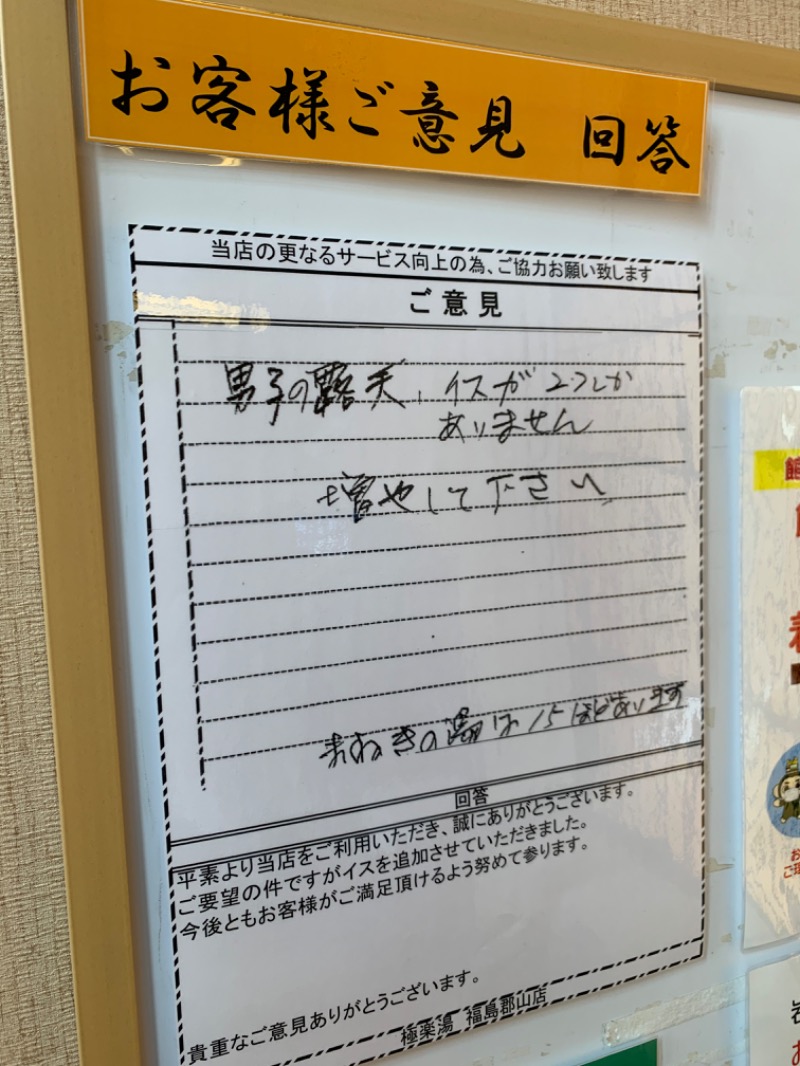 お客様ご意見 回答
当店の更なるサービス向上の為、ご協力お願い致します
ご意見
男子の露天、イスが2つしか
ありません
増やして下さい
まねきの湯は15ほどあります
回答
平素より当店をご利用いただき、誠にありがとうございます。
ご要望の件ですがイスを追加させていただきました。
今後ともお客様がご満足頂けるよう努めて参ります。
貴重なご意見ありがとうございます。
極楽湯 福島郡山店
館